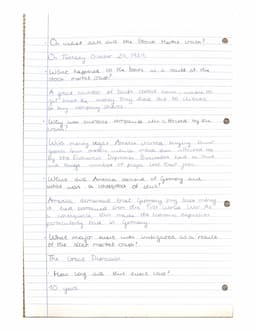 · On what date did the Stock Market crash?
On Tuesday October 29, 1929
· What happened to the banks as a result of the stock market crash?
A great number of banks closed down, unable to
get back the money they had lent to
to buy company shares
· Why was overseas companies also affected by the crash?
With money tight, America stopped buying
goods from
by the Economic Depression. Businesses had to
and huge numbers of people lost their jobs.
· What did America demand of Germany and
what was a consequence of this?
America demanded that Germany pay back money
it had borrowed after the First World War. As
a consequence, this made the economic depression
particularly bad in Germany.
· What major event was instigated as a result
of the stock market crash?
The Great Depression
· How long did this event last?
10 years